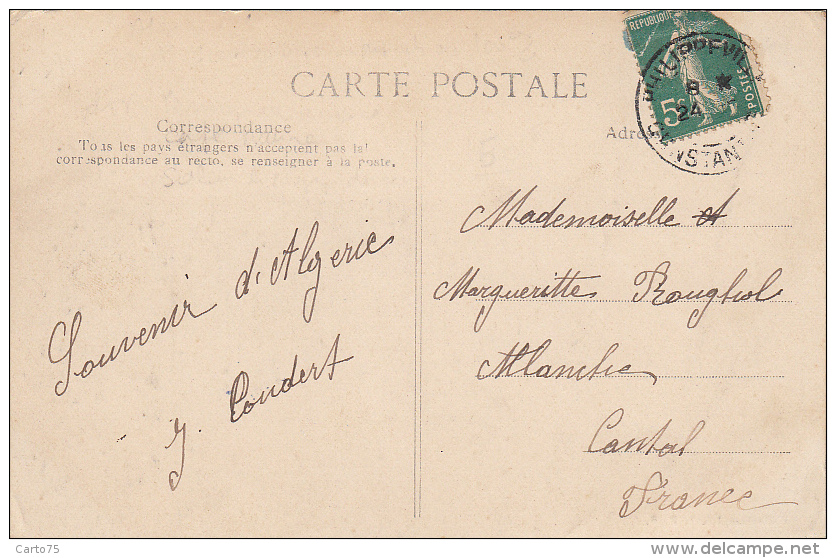 CARTE POSTALE
Correspondance
Tous les pays étrangers n'acceptent pas la
correspondance au recto, se renseigner à la poste.
Souvenir d'Algerie
J. Coudert
REPUBLIQUE
POSTES
5c
8
24
Mademoiselle
Margueritte
Allanche
Cantal
France
Carto75
www.delcampe.net